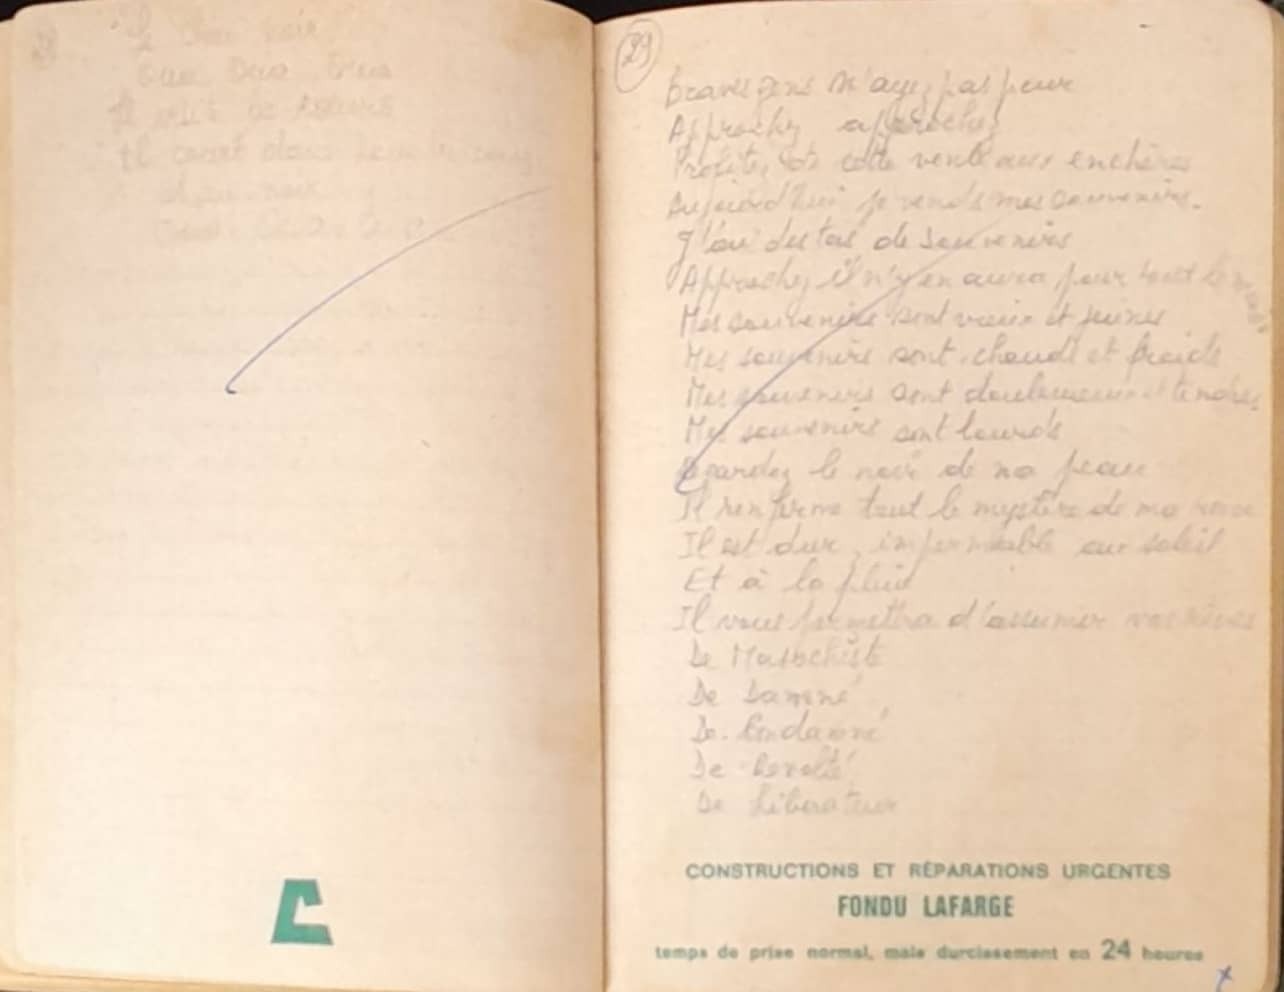 Il
Il était de
Il court dans
noir
29
Braves gens N'ayez pas peur
Approchez approchez
Profitez de cette vente aux enchères
Aujourd'hui je vends mes souvenirs.
J'ai des tas de souvenirs
Approchez il n'y en aura pour tout le monde
Mes souvenirs sont vieux et jeunes
Mes souvenirs sont chauds et froids
Mes souvenirs sont douloureux et tendres
Mes souvenirs sont lourds
Regardez le noir de ma peau
Il renferme tout le mystère de ma
Il est dur, imperméable au soleil
Et à la pluie
Il vous permettra d'assumer vos rêves
De Masochiste
De Damné
De Condamné
De Révolté
De Libérateur
CONSTRUCTIONS ET RÉPARATIONS URGENTES
FONDU LAFARGE
temps de prise normal, mais durcissement en 24 heures